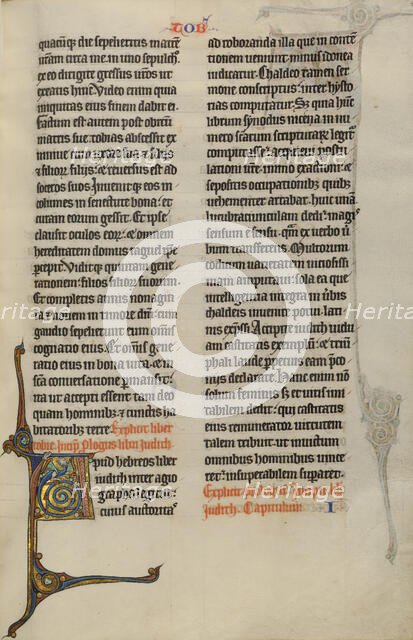 TOB'
quacūq; die sepelieritis matrē
urām circa me in uno sepulchro
ex eo dirigite gressus uros ut
exeatis hinc. Video enim quia
iniquitas eius finem dabit ei.
Factum est autem post obitum
matris sue tobias abscessit ex
ninive cum uxore sua & filiis
& filiorum filiis: & reversus est ad
soceros suos. Invenitq; eos in
columes in senectute bona: et
curam eorum gessit. Et ipse
clausit oculos eorum: & omnem
hereditatem domus raguel ipse
percepit. Viditq; quintam gene
rationem: filios filiorum suorum.
Et completis annis nonagin
ta novem in timore domini cum
gaudio sepelierunt eum
cognatio eius. Et omnis gene
ratio eius in bona vita: & in sca
sca conversatione permansit.
ita ut accepti essent tam deo
quam hominib; & cunctis ha
bitatorib; terre. Explicit liber
tobie. Incip plogus libri Judith.
Apud hebreos liber
judith inter agio
grapha legitur:
cuius auctoritas
ad roboranda illa que in conten
tionem veniunt: minus idonea
iudicatur. Chaldeo tamen ser
mone conscriptus: inter hysto
rias computatur. S; quia hunc
librum synodus nicena in nu
mero sanctarum scripturarum legitur
computasse: acquievi postu
lationi ure immo exactioni: &
sepositis occupationib; quib;
vehementer artabar: huic unam
lucubratiunculam dedi: magis
sensum e sensu: quam ex verbo ver
bum transferens. Multorum
codicum varietatem vitiosissi
mam amputavi: sola ea que
intelligentia integra in verbis
chaldeis invenire potui: latinis
expressi. Accipite judith viduam
castitatis exemplum: & trium
phali laude perpetuis eam preco
niis declarate. Hanc enim non
solum feminis sed & viris imi
tabilem dedit: qui castitatis
eius remunerator virtutem
talem tribuit: ut invictum
omnibus hominibus vince
ret: insuperabilem superaret.
Judith. Capitulum I
Heritage Images
Heritage Images
Heritage Images
Heritage Images
Heritage Images
Heritage Images